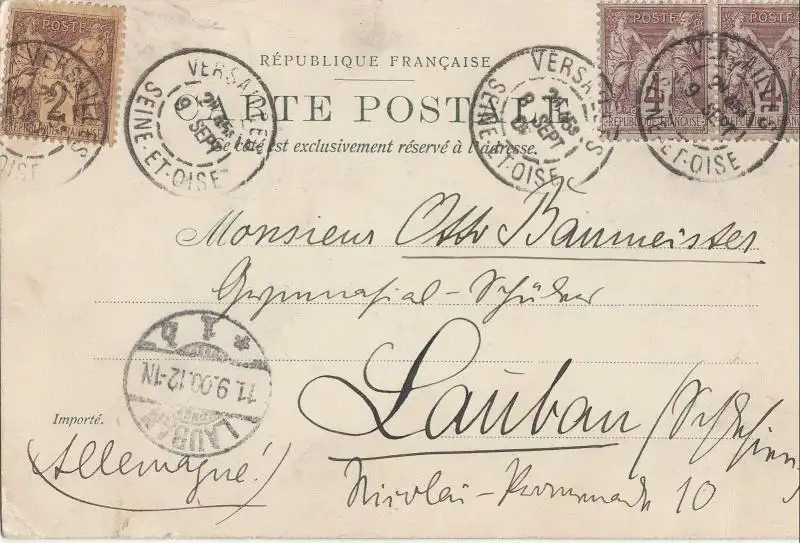 POSTE
2
RÉPUBLIQUE FRANÇAISE
VERSAILLES
9 SEPT
SEINE-ET-OISE
VERSAILLES
9 SEPT
SEINE-ET-OISE
POSTE
POSTE
RÉPUBLIQUE FRANÇAISE
CARTE POSTALE
Ce côté est exclusivement réservé à l'adresse.
Monsieur Otto Baumeister
Gymnasial-Schüler
Lauban (Schlesien
* 1 b
11.9.00.12-1N
LAUBAN
Importé.
(Allemagne!)
Nicolai-Promenade 10